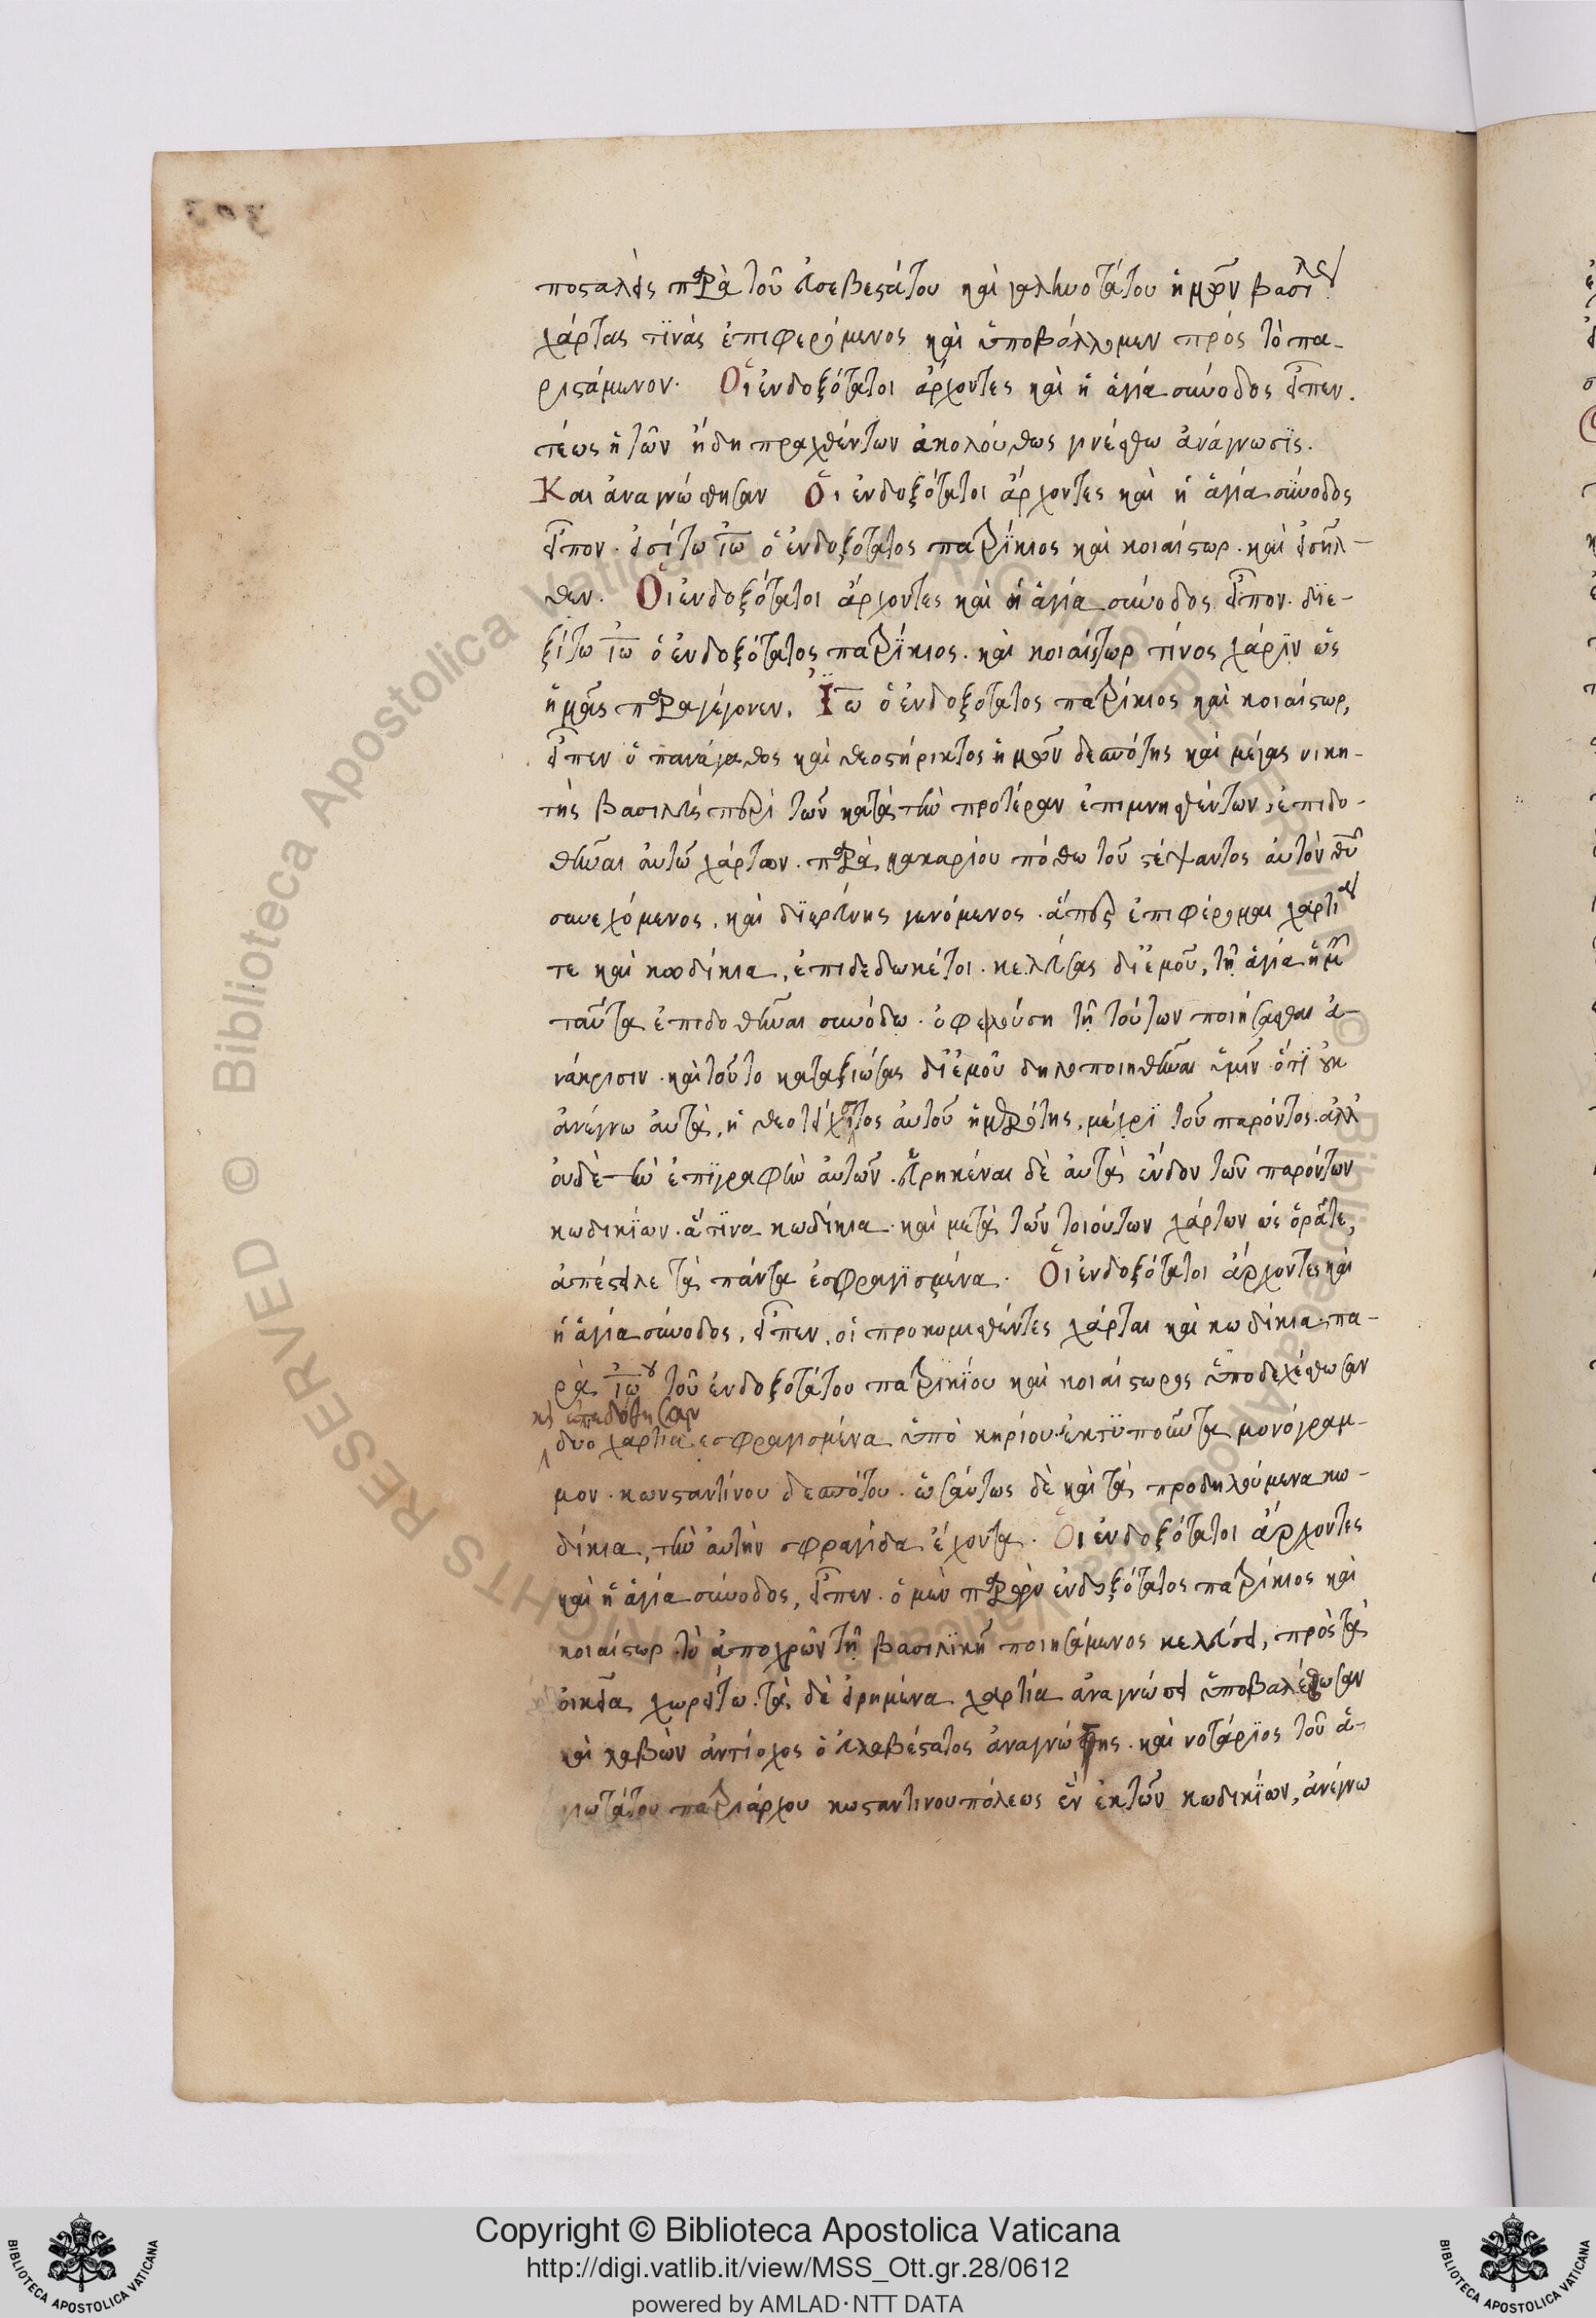 ποσταλεὶς παρὰ τοῦ εὐσεβεστάτου καὶ γαληνοτάτου ἡμῶν βασιλέως
χάρτας τϊνὰς ἐπιφερόμενος καὶ ὑποβάλλομεν πρὸς τὸ πα-
ριστάμενον. Οἱ ἐνδοξότατοι ἄρχοντες καὶ ἡ ἁγία σύνοδος εἶπεν.
τέως ἡ τῶν ἤδη πραχθέντων ἀκολούθως γινέσθω ἀνάγνωσϊς.
Και ἀναγνώσθησαν Οἱ ἐνδοξότατοι ἄρχοντες καὶ ἡ ἁγία σύνοδος
εἶπον. εἰσίτω ἰω ὁ ἐνδοξότατος πατρίκιος καὶ κοιαίστωρ. καὶ εἰσῆλ-
θεν. Οἱ ἐνδοξότατοι ἄρχοντες καὶ ἡ ἁγία σύνοδος εἶπον. διε-
ξίτω ἰω ὁ ἐνδοξότατος πατρίκιος. καὶ κοιαίστωρ τίνος χάρϊν ὡς
ἡμᾶς παραγέγονεν. Ἰω ὁ ἐνδοξοτατος πατρίκιος καὶ κοιαίστωρ,
εἶπεν ὁ πανάγαθος καὶ θεοστήρικτος ἡμῶν δεσπότης καὶ μέγας νικη-
τὴς βασιλεὺς περὶ τῶν κατὰ τὴν προτέραν ἐπιμνησθέντων, ἐπιδο-
θῆναι αὐτῶ χάρτων. παρὰ μακαρίου πόθω τοῦ στέψαντος αὐτὸν θῦ
συνεχόμενος. καὶ διερεύνης γενόμενος. ἅπερ ἐπιφέρομαι χαρτία
τε καὶ κωδίκια, ἐπιδεδωκέτοι. κελεύσας δι ἐμοῦ, τῇ ἁγία ἡμῶν
ταῦτα ἐπιδοθῆναι συνόδω. ὀφειλούση τὴν τούτων ποιήσασθαι ἀ-
νάκρισιν. καὶ τοῦτο καταξιώσας δι ἐμοῦ δηλοποιηθῆναι ὑμῖν. ὅτϊ οὐκ
ἀνέγνω αὐτὰ, ἡ θεοτείχιστος αὐτοῦ ἡμερότης. μέχρϊ τοῦ παρόντος. ἀλλ
οὐδὲ τὴν ἐπϊγραφὴν αὐτῶν. εὑρηκέναι δὲ αὐτὰ ἔνδον τῶν παρόντων
κωδικίων. ἅτϊνα κωδίκια. καὶ μετὰ τῶν τοιούτων χάρτων ὡς ὁρᾶτε,
ἀπέστειλε τὰ πάντα ἐσφραγισμένα. Οἱ ἐνδοξότατοι ἄρχοντες καὶ
ἡ ἁγία σύνοδος, εἶπεν. οἱ προκομισθέντες χάρται καὶ κωδίκια πα-
ρὰ ἰωου τοῦ ἐνδοξοτάτου πατρικίου καὶ κοιαίστωρος ὑποδεχέσθωσαν
κὶ ἐπεδόθησαν
δυο χαρτία ἐσφραγισμένα ὑπὸ κηρίου. ἐκτϋποῦντα μονόγραμ-
μον. κωνσταντίνου δεσπότου. ὡσαύτως δὲ καὶ τὰ προδηλούμενα κω-
δίκια, τὴν αὐτὴν σφραγίδα ἔχοντα. Οἱ ἐνδοξότατοι ἄρχοντες
καὶ ἡ ἁγία σύνοδος, εἶπεν. ὁ μὲν παρὼν ἐνδοξότατος πατρίκιος καὶ
κοιαίστωρ τὸ ἀποχρῶν τῇ βασιλϊκῇ ποιησάμενος κελεύσει, πρὸς τὰ
οἰκεῖα χωρείτω. τὰ δὲ εἰρημένα χαρτία ἀναγνώσει ὑποβαλέσθωσαν
καὶ λαβὼν ἀντίοχος ὁ εὐλαβέστατος ἀναγνώστης. καὶ νοτάριος τοῦ ἁ-
γιωτάτου πατριάρχου κωσταντινουπόλεως ἓν ἐκ τῶν κωδικίων, ἀνέγνω
Copyright © Biblioteca Apostolica Vaticana
http://digi.vatlib.it/view/MSS_Ott.gr.28/0612
powered by AMLAD·NTT DATA